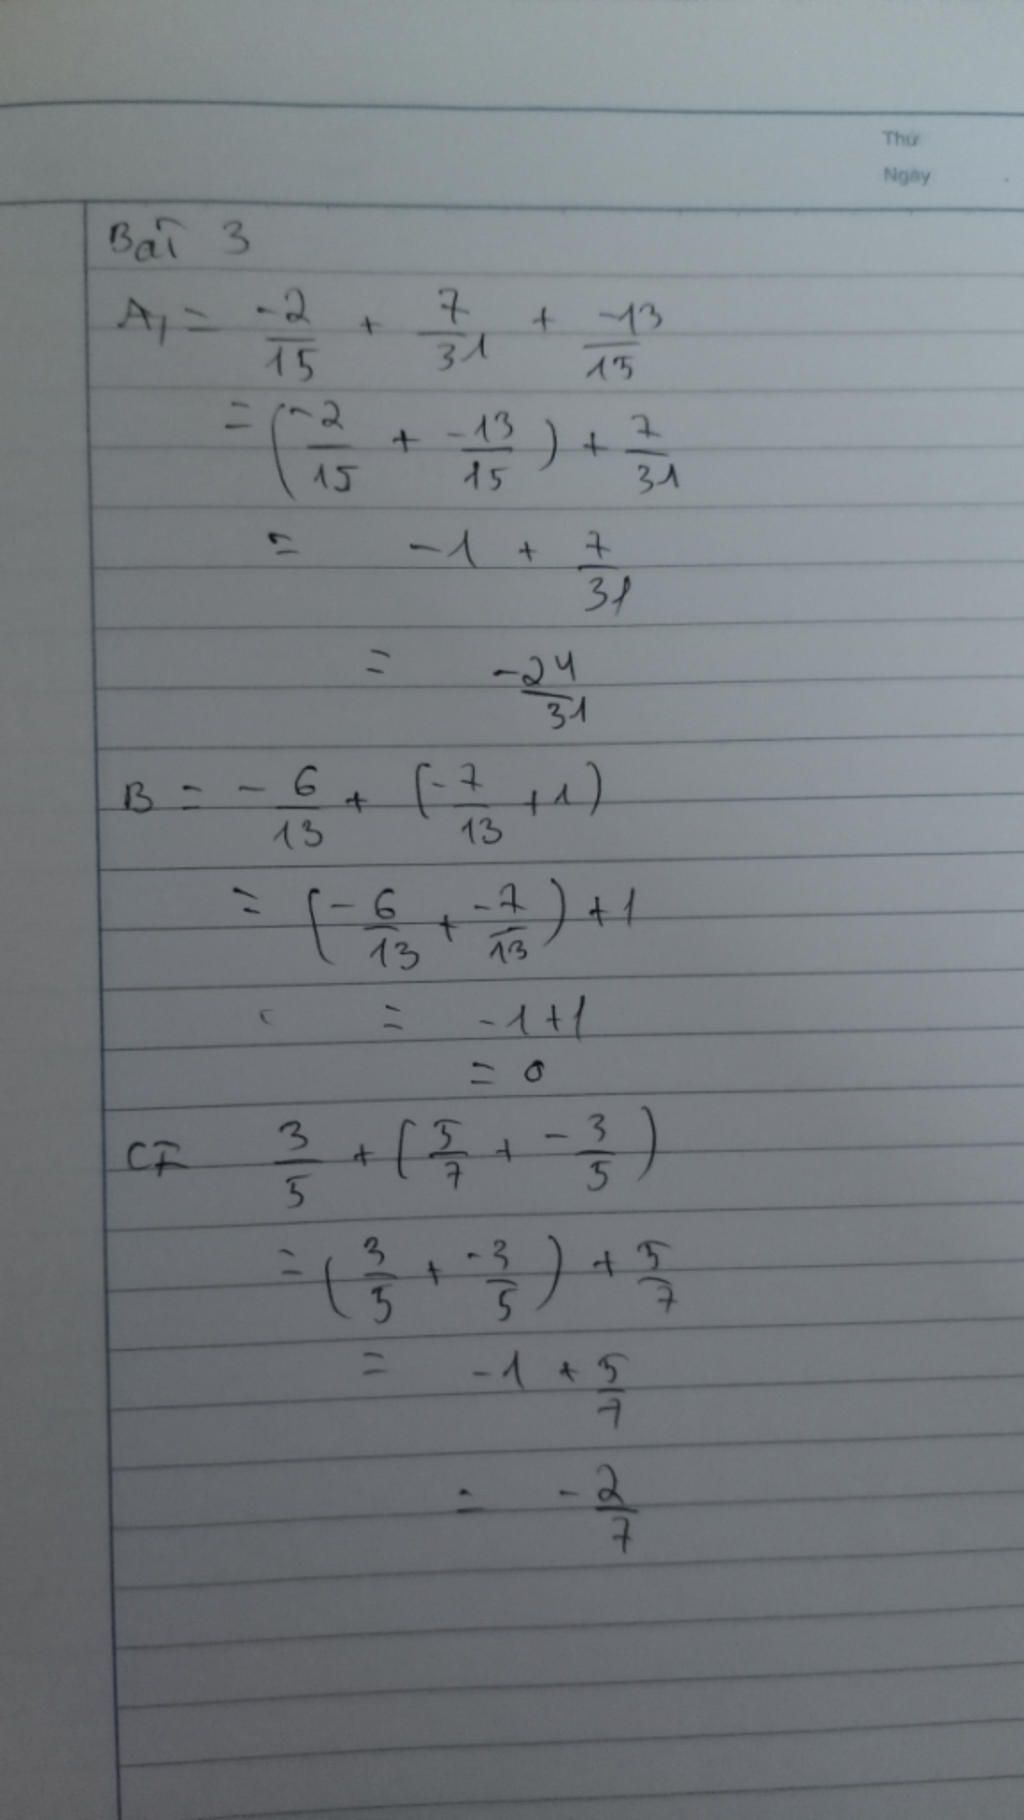 Thứ
Ngày
Bài 3
A, = -2/15 + 7/31 + -13/15
= (-2/15 + -13/15) + 7/31
= -1 + 7/31
= -24/31
B = -6/13 + (-7/13 + 1)
= (-6/13 + -7/13) + 1
= -1+1
= 0
C = 3/5 + (5/7 + -3/5)
= (3/5 + -3/5) + 5/7
= -1 + 5/7
= -2/7